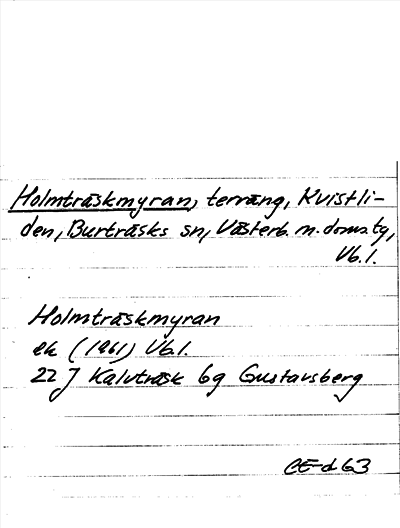 Holmträskmyran, terräng, Kvistli-
den, Burträsks sn, Västerb. m. doms.tg,
Vb.l.
Holmträskmyran
ek (1961) Vb.l.
22 J Kalvträsk 6g Gustavsberg
CE-d 63